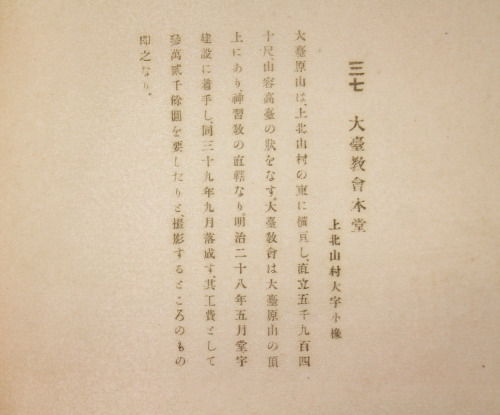 三七　大臺敎會本堂
上北山村大字小橡
大臺原山は、上北山村の東に橫亘し、直立五千九百四
十尺、山容高臺の狀をなす。大臺敎會は大臺原山の頂
上にあり、神習敎の直轄なり。明治二十八年五月堂宇
建設に着手し、同三十九年九月落成す。其工費として
參萬貳千餘圓を要したりと、撮影するところのもの
卽之なり。